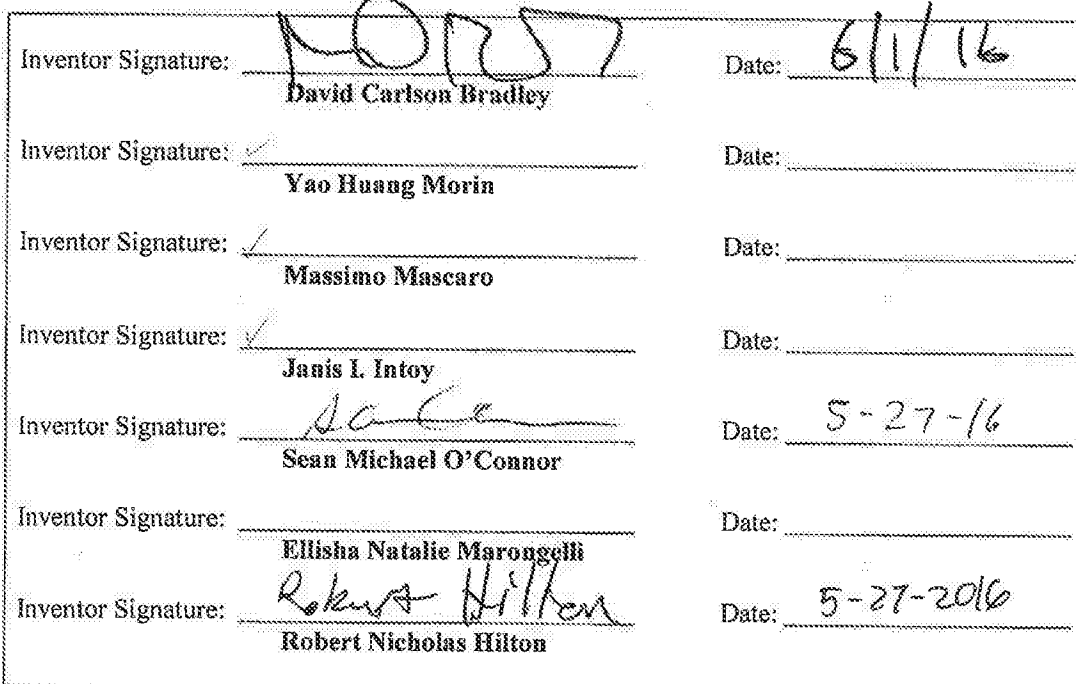 Inventor Signature: Date: 6/1/16
David Carlson Bradley
Inventor Signature: ✓ Date:
Yao Huang Morin
Inventor Signature: ✓ Date:
Massimo Mascaro
Inventor Signature: ✓ Date:
Janis I. Intoy
Inventor Signature: Date: 5-27-16
Sean Michael O'Connor
Inventor Signature: Date:
Ellisha Natalie Marongelli
Inventor Signature: Robert Hilton Date: 5-27-2016
Robert Nicholas Hilton